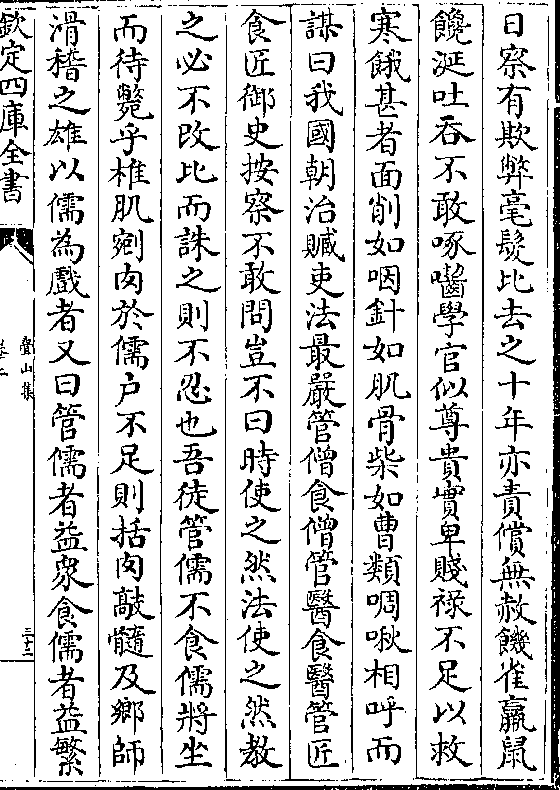 日察有欺弊毫髮比去之十年亦責償無赦饑雀羸鼠
饞涎吐吞不敢啄嚙學官似尊貴實卑賤祿不足以救
寒餓甚者面削如咽針如肌骨柴如曹類啁啾相呼而
謀曰我國朝治贓吏法最嚴管僧食僧管醫食醫管匠
食匠御史按察不敢問豈不曰時使之然法使之然教
之必不改比而誅之則不忍也吾徒管儒不食儒將坐
而待斃乎椎肌剜肉於儒户不足則括肉敲髓及鄉師
滑稽之雄以儒為戲者又曰管儒者益衆食儒者益繁
欽定四庫全書
疊山集
卷二
三十二